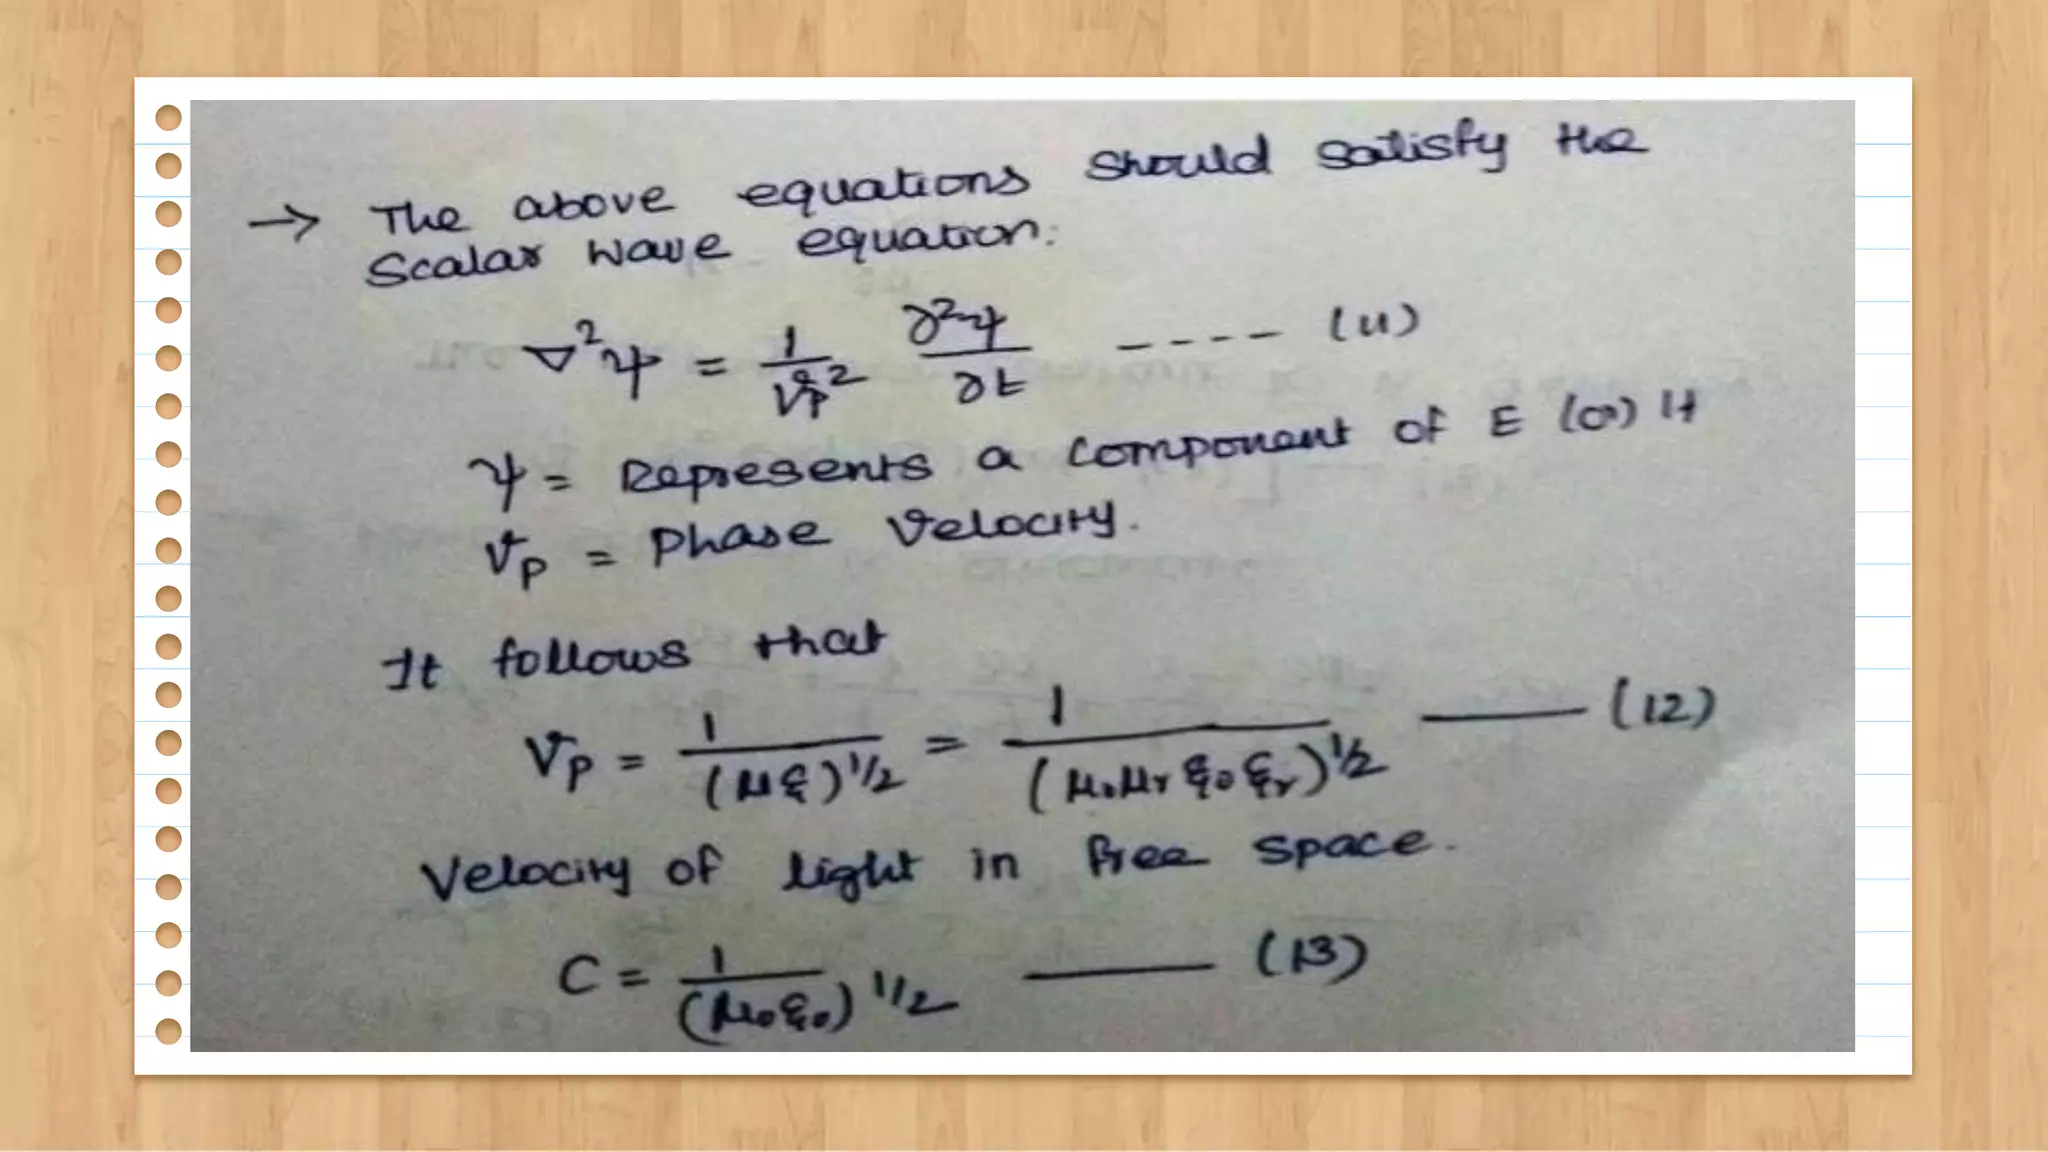 → The above equations should satisfy the
scalar wave equation:
∇²ψ = 1/Vp² ∂²ψ/∂t ---- (11)
ψ = Represents a component of E (or) H
Vp = Phase Velocity.
It follows that
Vp = 1/(με)^1/2 = 1/(μ₀μr ε₀εr)^1/2 —— (12)
Velocity of light in free space.
C = 1/(μ₀ε₀)^1/2 —— (13)